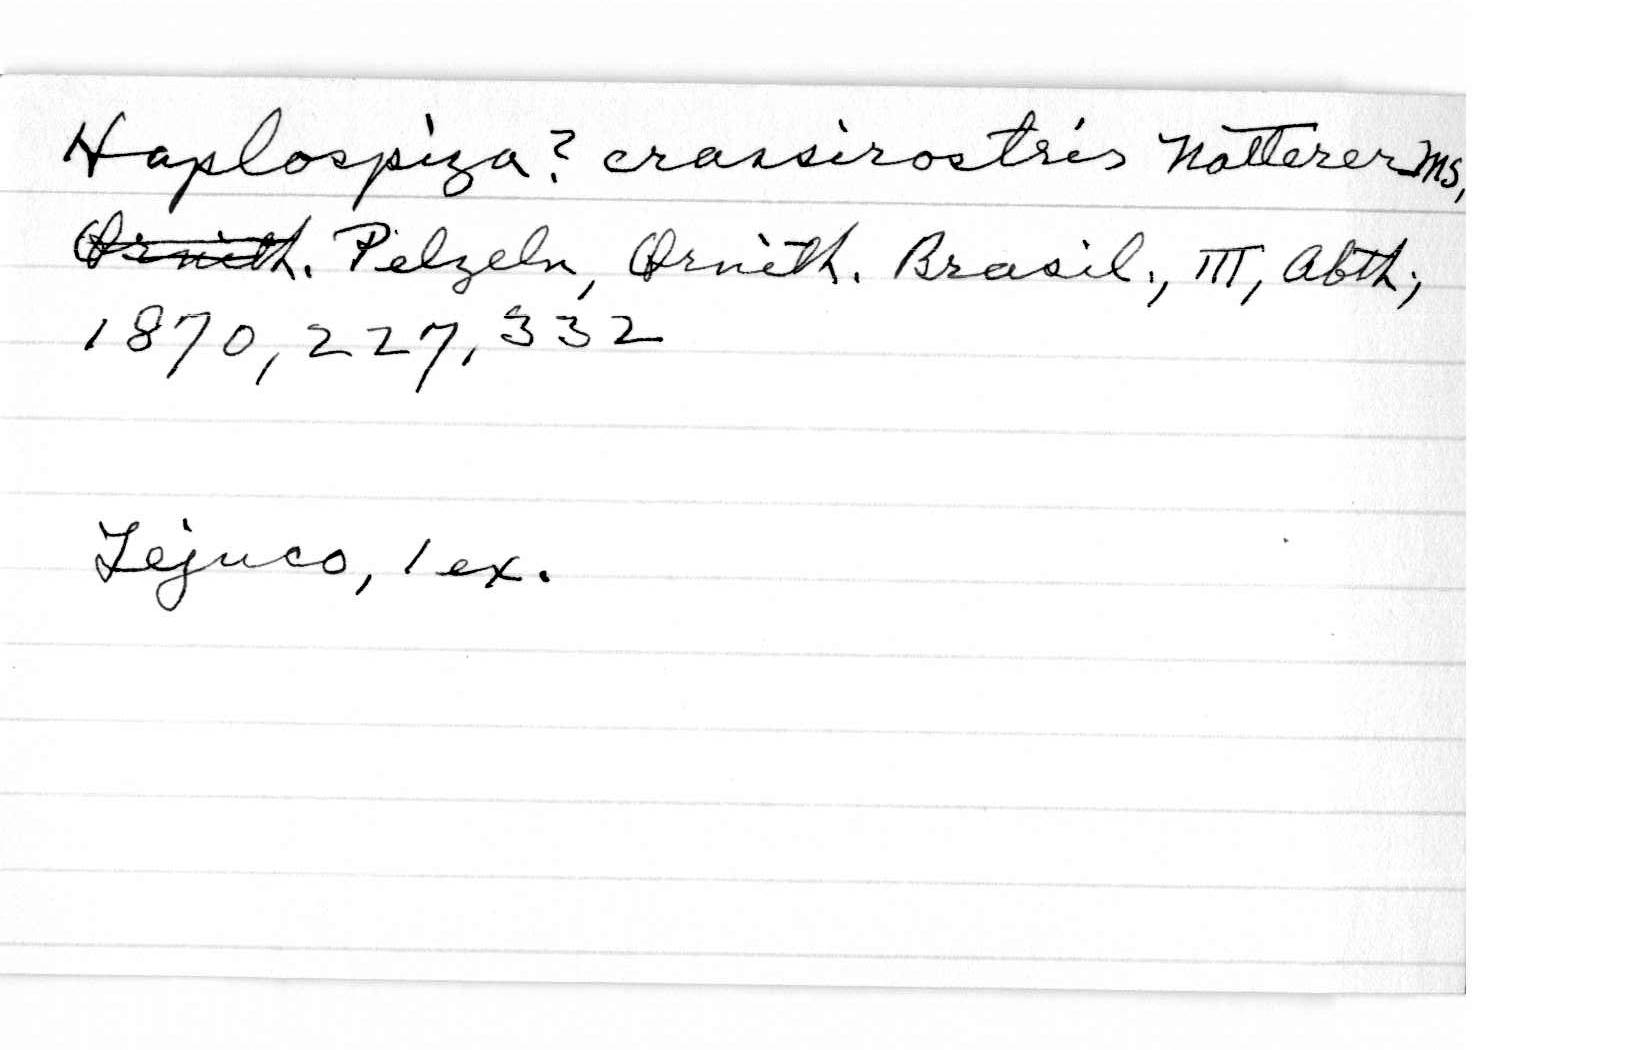 Haplospiza? crassirostris Natterer Ms,
Ornith. Pelzeln, Ornith. Brasil., III, Abth;
1870, 227, 332
Tejuco, 1 ex.